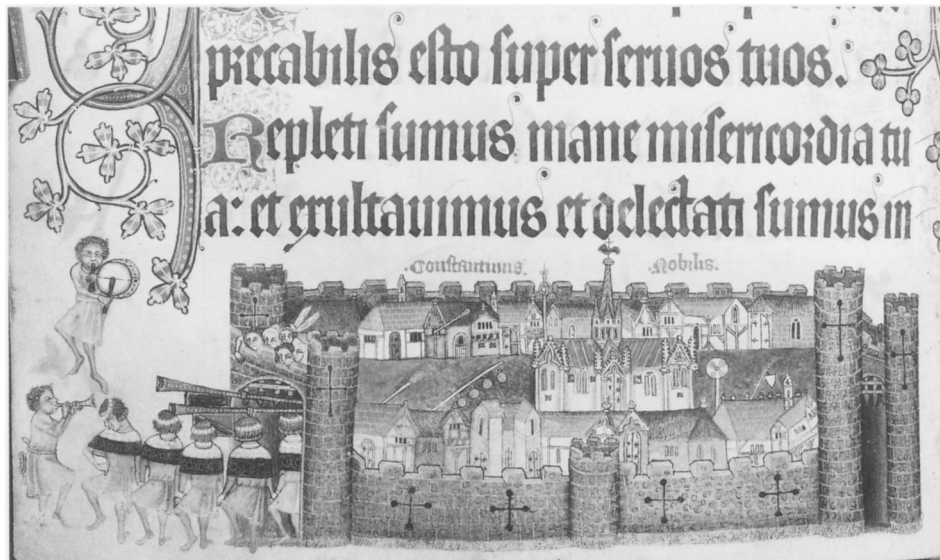 precabilis esto super seruos tuos.
Repleti sumus mane misericordia tu
a: et exultauimus et delectati sumus in
Constantinus. Nobilis.